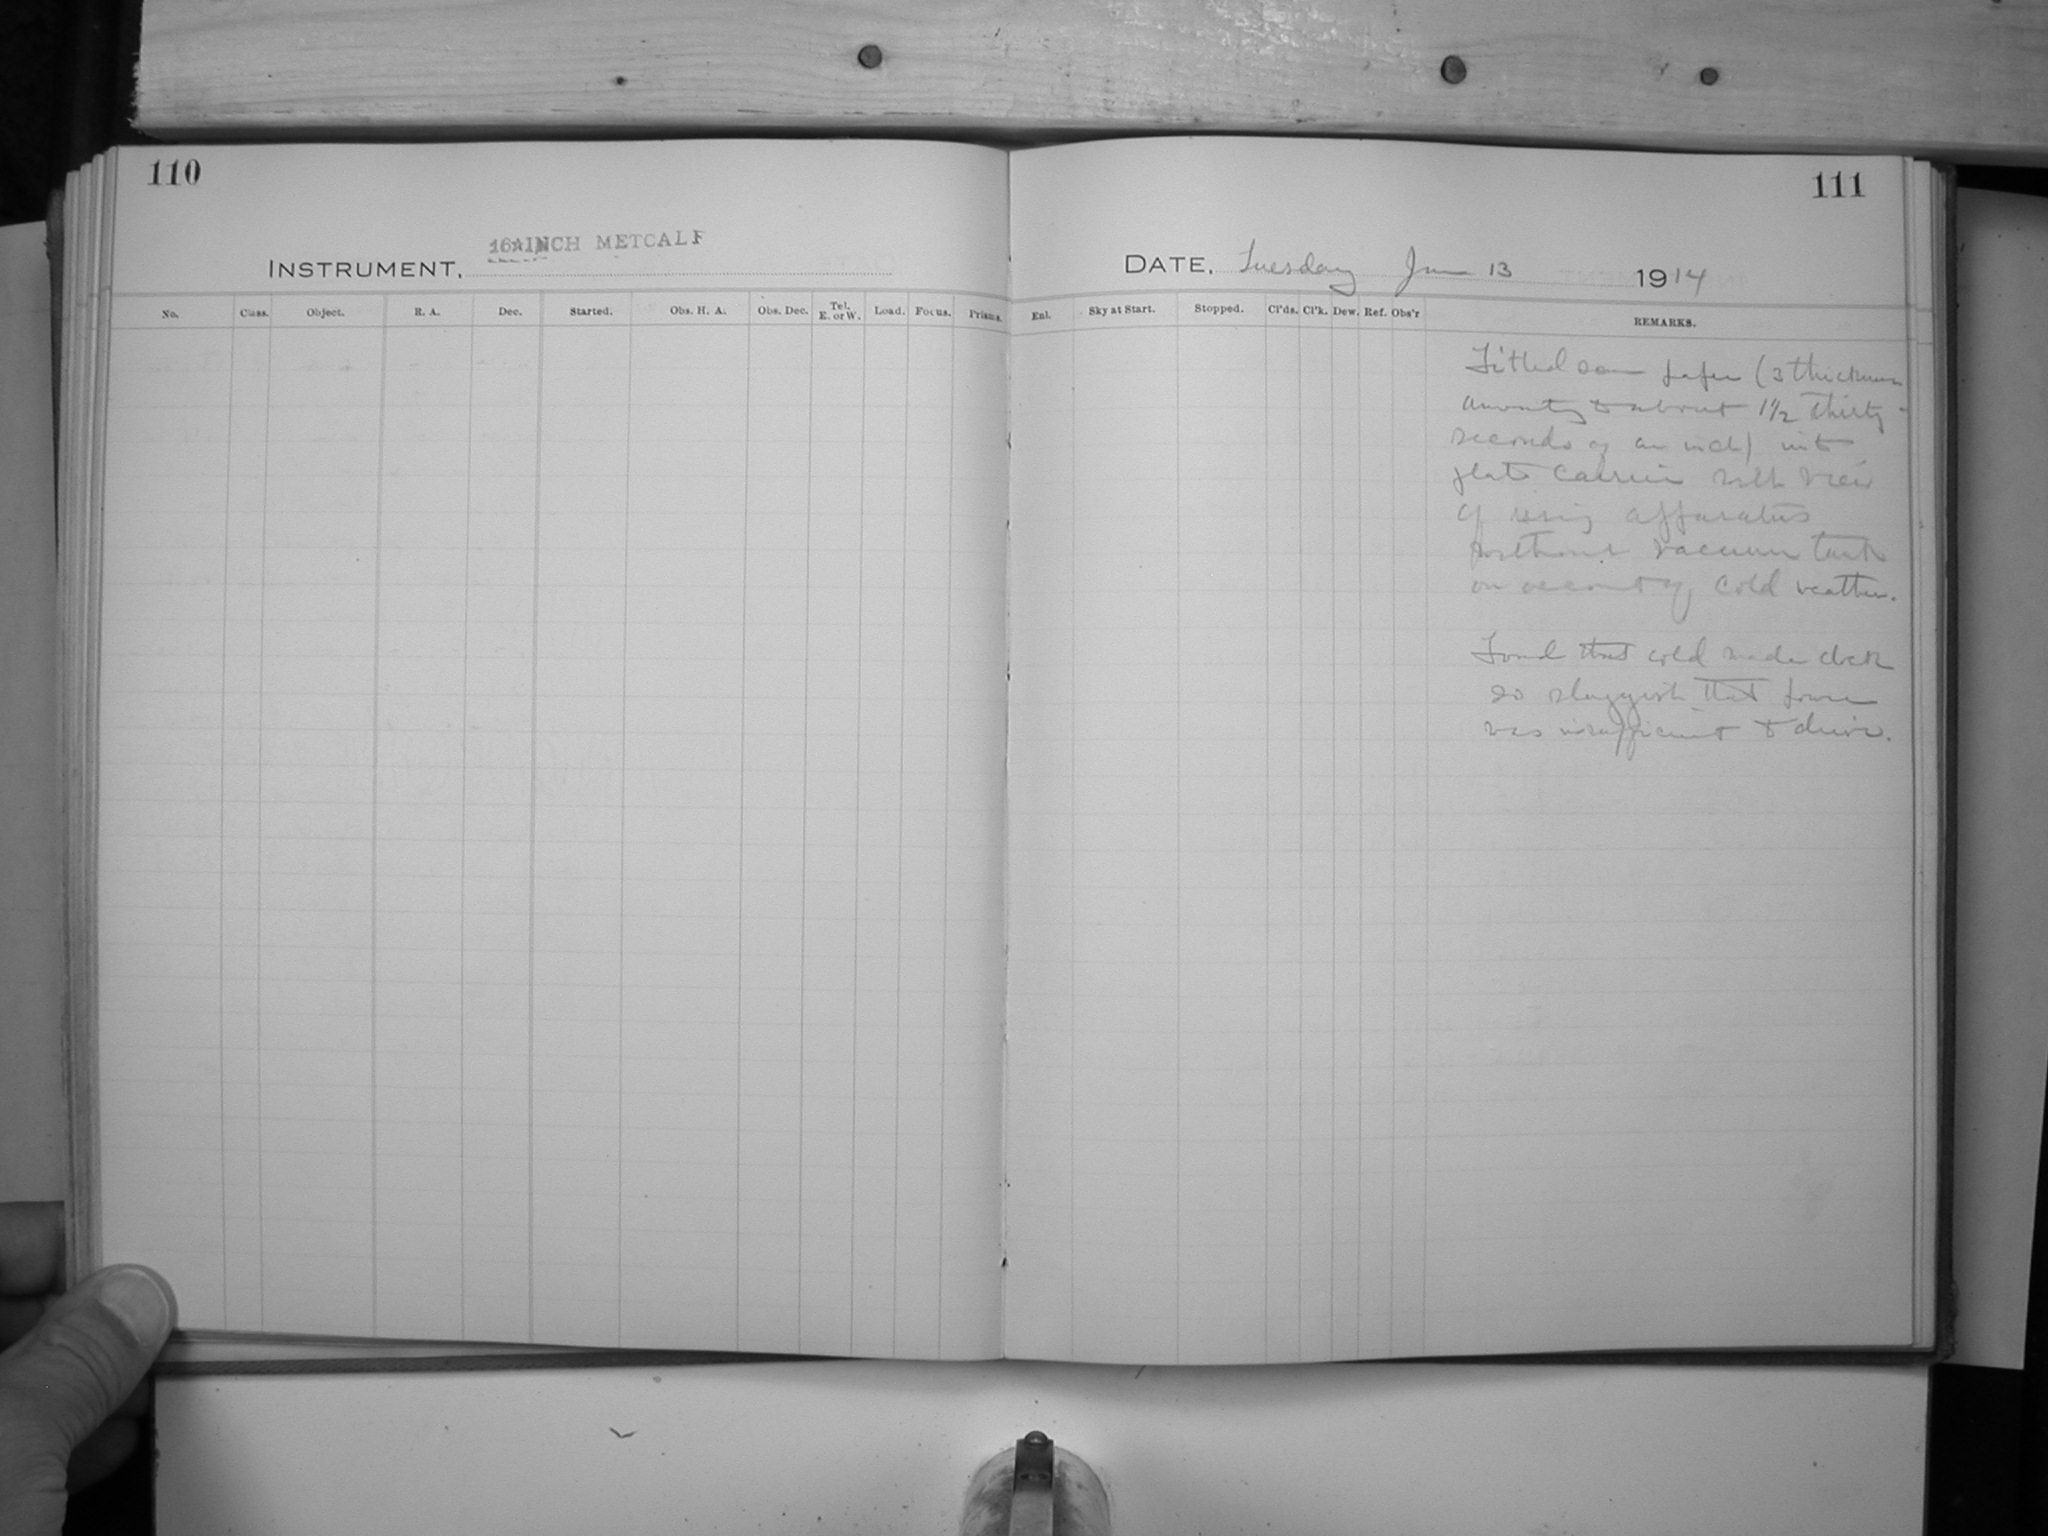 110
16 INCH METCALF
INSTRUMENT,
No. Class. Object. R. A. Dec. Started. Obs. H. A. Obs. Dec. Tel. E. or W. Load. Focus. Prisms.
111
DATE, Tuesday Jan 13 1914
Enl. Sky at Start. Stopped. Cl'ds. Cl'k. Dew. Ref. Obs'r REMARKS.
Fitted some paper (3 thicknesses
amounting to about 1 1/2 thirty-
seconds of an inch) into
plate carrier with view
of using apparatus
without vacuum tank
on account of cold weather.
Found that cold made clock
so sluggish that power
was insufficient to drive.